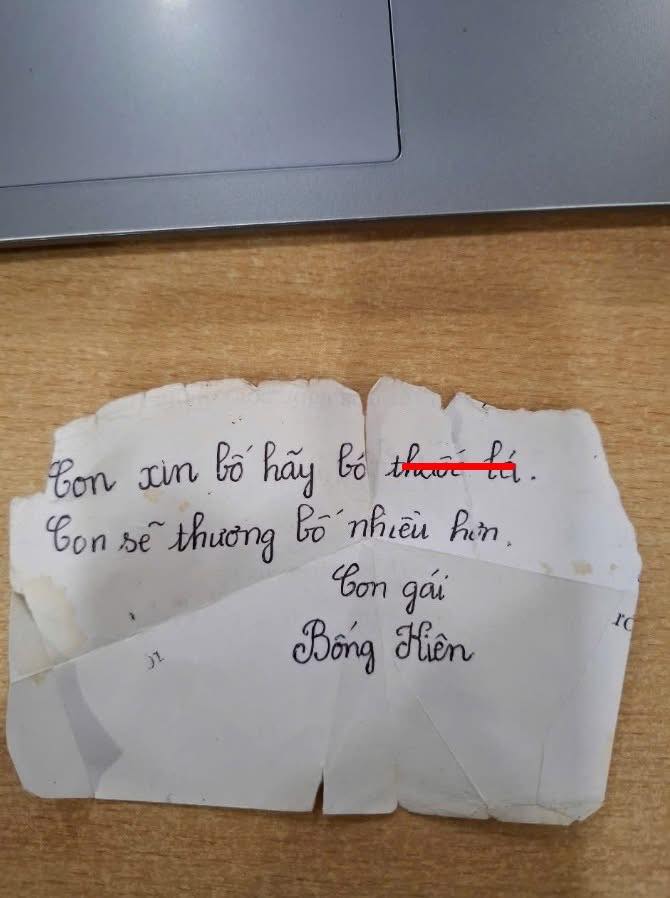 Con xin bố hãy bỏ thuốc lá.
Con sẽ thương bố nhiều hơn.
Con gái
Bống Hiên